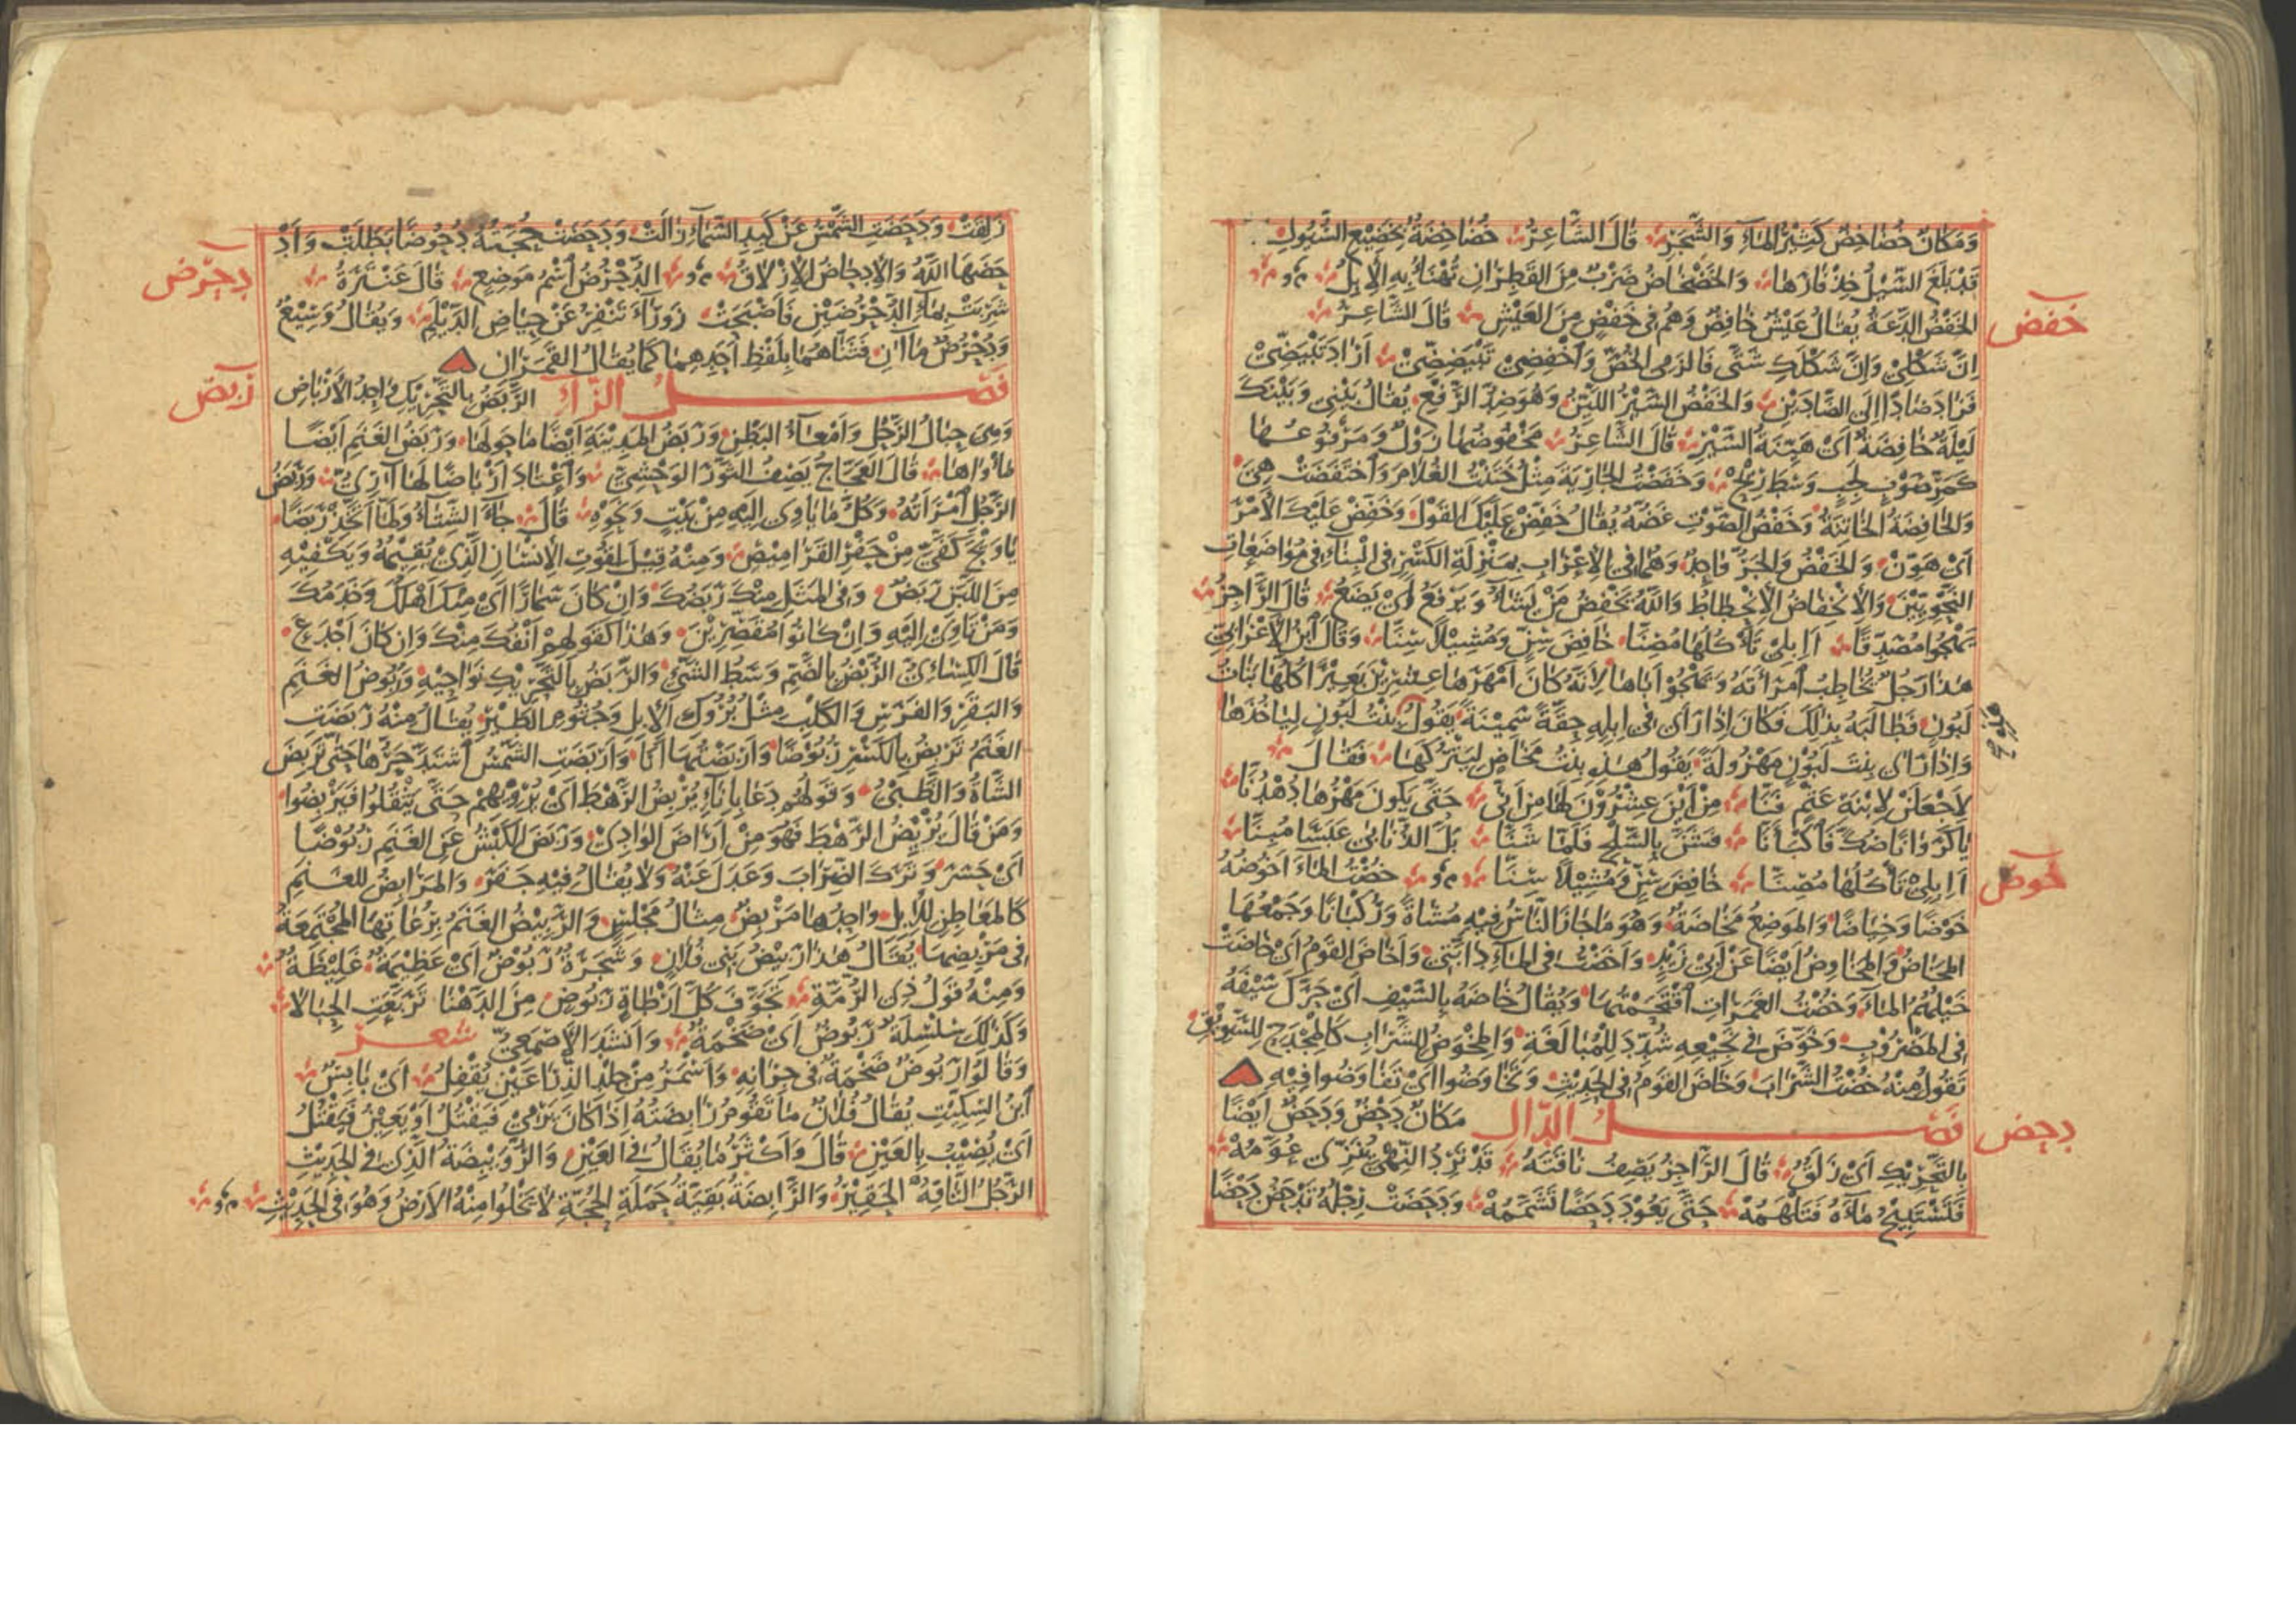 وَمَكَانٌ خُضَاخِضٌ كَثِيْرُ الْمَاءِ وَالشَّجَرِ قَالَ الشَّاعِرُ خُضَاخِضَةٌ بِخَضِيْعِ السُّيُولِ
قَدْ بَلَغَ السَّيْلُ حِذْفَارَهَا وَالخَضْخَاضُ ضَرْبٌ مِنَ القَطِرَانِ تُهْنَأُ بِهِ الإِبِلُ
خفض
الخَفْضُ الدَّعَةُ يُقَالُ عَيْشٌ خَافِضٌ وَهُمْ فِى خَفْضٍ مِنَ العَيْشِ قَالَ الشَّاعِرُ
اِنَّ شَكْلِىْ وَاِنَّ شَكْلَكِ شَتَّى فَالْزَمِى الخُصَّ وَاخْفِضِىْ تَبْيَضِضِّىْ اَرَادَ تَبْيَضِّىْ
فَزَادَ ضَادًا اِلَى الضَّادَيْنِ وَالخَفْضُ السَّيْرُ اللَّيِّنُ وَهُوَ ضِدُّ الرَّفْعِ يُقَالُ بَيْنِى وَبَيْنَكَ
لَيْلَةٌ خَافِضَةٌ اَىْ هَيِّنَةُ السَّيْرِ قَالَ الشَّاعِرُ مَخْفُوضُهَا زَوْلٌ وَمَرْفُوعُهَا
كَمَرِّ صَوْبٍ لَجِبٍ وَسْطَ رِيْحْ وَخَفَضْتُ الجَارِيَةَ مِثْلُ خَتَنْتُ الغُلَامَ وَاخْتَفَضَتْ هِىَ
وَالخَافِضَةُ الخَاتِنَةُ وَخَفْضُ الصَّوْتِ غَضُّهُ يُقَالُ خَفِّضْ عَلَيْكَ القَوْلَ وَخَفِّضْ عَلَيْكَ الأَمْرَ
اَىْ هَوِّنْ وَالخَفْضُ وَالجَرُّ وَاحِدٌ وَهُمَا فِى الإِعْرَابِ بِمَنْزِلَةِ الكَسْرِ فِى البِنَاءِ فِى مُوَاضَعَاتِ
النَّحْوِيِّيْنَ وَالاِنْخِفَاضُ الاِنْحِطَاطُ وَاللّٰهُ يَخْفِضُ مَنْ يَشَاءُ وَيَرْفَعُ اَىْ يَضَعُ قَالَ الرَّاجِزُ
يَهْجُوا مُصَدِّقًا اَاِبِلِىْ تَأْكُلُهَا مُصِنَّا خَافِضَ سِنٍّ وَمُشِيْلًا سِنَّا وَقَالَ ابْنُ الاَعْرَابِىِّ
هٰذَا رَجُلٌ يُخَاطِبُ امْرَأَتَهُ وَيَهْجُوْ اَبَاهَا لِاَنَّهُ كَانَ اَمْهَرَهَا عِشْرِيْنَ بَعِيْرًا كُلُّهَا بَنَاتُ
لَبُونٍ فَطَالَبَهُ بِذٰلِكَ فَكَانَ اِذَا رَاَى فِى اِبِلِهِ حِقَّةً سَمِيْنَةً يَقُولُ بِنْتُ لَبُونٍ لِيَأْخُذَهَا
وَاِذَا رَاَى بِنْتَ لَبُوْنٍ مَهْزُولَةً يَقُولُ هٰذِهِ بِنْتُ مَخَاضٍ لِيَتْرُكَهَا فَقَالَ
لَاَجْعَلَنْ لِابْنَةِ عَثْمٍ فَنَّا مِنْ اَيْنَ عِشْرُوْنَ لَهَا مِنْ اَنَّى حَتَّى يَكُونَ مَهْرُهَا دُهْدُنَّا
يَا كَرَوَانًا صُكَّ فَاكْبَأَنَّا فَشَنَّ بِالسَّلْحِ فَلَمَّا شَنَّا بَلَّ الذُّنَابَى عَبَسًا مُبِنَّا
اَاِبِلِىْ تَأْكُلُهَا مُصِنَّا خَافِضَ سِنٍّ وَمُشِيْلًا سِنَّا خُضْتُ الْمَاءَ اَخُوضُهُ
خوض
خَوْضًا وَخِيَاضًا وَالمَوْضِعُ مَخَاضَةٌ وَهُوَ مَا جَازَ النَّاسُ فِيْهِ مُشَاةً وَرُكْبَانًا وَجَمْعُهَا
المَخَاضُ وَالمَخَاوِضُ اَيْضًا عَنْ اَبِىْ زَيْدٍ وَاَخَضْتُ فِى المَاءِ دَابَّتِى وَاَخَاضَ القَوْمُ اَىْ خَاضَتْ
خَيْلُهُمُ المَاءَ وَخُضْتُ الغَمَرَاتِ اقْتَحَمْتُهَا وَيُقَالُ خَاضَهُ بِالسَّيْفِ اَىْ حَرَّكَ سَيْفَهُ
فِى المَضْرُوْبِ وَخَوَّضَ فِى نَجِيْعِهِ شُدِّدَ لِلْمُبَالَغَةِ وَالمِخْوَضُ لِلشَّرَابِ كَالمِجْدَحِ لِلسَّوِيْقِ
تَقُولُ مِنْهُ خُضْتُ الشَّرَابَ وَخَاضَ القَوْمُ فِى الحَدِيْثِ وَتَخَاوَضُوا اَىْ تَفَاوَضُوا فِيْهِ
دحض
فَصْلُ الدَّال مَكَانٌ دَحْضٌ وَدَحَضٌ اَيْضًا
بِالتَّحْرِيْكِ اَىْ زَلَقٌ قَالَ الرَّاجِزُ يَصِفُ نَاقَتَهُ قَدْ تَرِدُ النِّهْىَ تَنَزَّى عُوَّمُهْ
فَتَسْتَبِيْحُ مَاءَهُ فَتَلْهَمُهْ حَتَّى يَعُوْدَ دَحَضًا تَشَمَّمُهْ وَدَحَضَتْ رِجْلُهُ تَدْحَضُ دَحْضًا
زَلِقَتْ وَدَحَضَتِ الشَّمْسُ عَنْ كَبِدِ السَّمَاءِ زَالَتْ وَدَحَضَتْ حُجَّتُهُ دُحُوضًا بَطَلَتْ وَاَدْ
حَضَهَا اللّٰهُ وَالاِدْحَاضُ الاِزْلَاقُ الدُّحْرُضُ اسْمُ مَوْضِعٍ قَالَ عَنْتَرَةُ
دحرض
شَرِبَتْ بِمَاءِ الدُّحْرُضَيْنِ فَاَصْبَحَتْ زَوْرَاءَ تَنْفِرُ عَنْ حِيَاضِ الدَّيْلَمِ وَيُقَالُ وَسِيْعٌ
وَدُحْرُضٌ مَاآنِ فَثَنَّاهُمَا بِلَفْظِ اَحَدِهِمَا كَمَا يُقَالُ القَمَرَانِ
فَصْلُ الرَّاء الرَّبَضُ بِالتَّحْرِيْكِ وَاحِدُ الاَرْبَاضِ
ربض
وَهِىَ حِبَالُ الرَّحْلِ وَاَمْعَاءُ البَطْنِ وَرَبَضُ المَدِيْنَةِ اَيْضًا مَا حَوْلَهَا وَرَبَضُ الغَنَمِ اَيْضًا
مَأْوَاهَا قَالَ العَجَّاجُ يَصِفُ الثَّوْرَ الوَحْشِىَّ وَاعْتَادَ اَرْبَاضًا لَهَا آرِىُّ وَرَبَضُ
الرَّجُلِ امْرَأَتُهُ وَكُلُّ مَا يَأْوِى اِلَيْهِ مِنْ بَيْتٍ وَنَحْوِهِ قَالَ جَاءَ الشِّتَاءُ وَلَمَّا اَتَّخِذْ رَبَضًا
يَا وَيْحَ كَفَّىَّ مِنْ حَفْرِ القَرَامِيْصِ وَمِنْهُ قِيْلَ لِقُوْتِ الاِنْسَانِ الَّذِىْ يُقِيْمُهُ وَيَكْفِيْهِ
مِنَ اللَّبَنِ رَبَضٌ وَفِى المَثَلِ مِنْكَ رَبَضُكَ وَاِنْ كَانَ سَمَارًا اَىْ مِنْكَ اَهْلُكَ وَخَدَمُكَ
وَمَنْ تَأْوِىْ اِلَيْهِ وَاِنْ كَانُوْا مُقَصِّرِيْنَ وَهٰذَا كَقَوْلِهِمْ اَنْفُكَ مِنْكَ وَاِنْ كَانَ اَجْدَعَ
قَالَ الكِسَائِىُّ الرُّبْضُ بِالضَّمِّ وَسَطُ الشَّىْءِ وَالرَّبَضُ بِالتَّحْرِيْكِ نَوَاحِيْهِ وَرُبُوضُ الغَنَمِ
وَالبَقَرِ وَالفَرَسِ وَالكَلْبِ مِثْلُ بُرُوْكِ الاِبِلِ وَجُثُوْمِ الطَّيْرِ يُقَالُ مِنْهُ رَبَضَتِ
الغَنَمُ تَرْبِضُ بِالكَسْرِ رُبُوْضًا وَاَرْبَضْتُهَا اَنَا وَاَرْبَضَتِ الشَّمْسُ اشْتَدَّ حَرُّهَا حَتَّى تُرْبِضَ
الشَّاةَ وَالظَّبْىَ وَقَوْلُهُمْ دَعَا بِاِنَاءٍ يُرْبِضُ الرَّهْطَ اَىْ يُرْوِيْهِمْ حَتَّى يَثْقُلُوا فَيَرْبِضُوا
وَمَنْ قَالَ يُرِيْضُ الرَّهْطَ فَهُوَ مِنْ اَرَاضَ الوَادِىْ وَرَبَضَ الكَبْشُ عَنِ الغَنَمِ رُبُوْضًا
اَىْ حَسَرَ وَتَرَكَ الضِّرَابَ وَعَدَلَ عَنْهُ وَلَا يُقَالُ فِيْهِ جَفَرَ وَالمَرَابِضُ لِلغَنَمِ
كَالمَعَاطِنِ لِلاِبِلِ وَاحِدُهَا مَرْبِضٌ مِثَالُ مَجْلِسٍ وَالرَّبِيْضُ الغَنَمُ بِرُعَاتِهَا المُجْتَمِعَةُ
فِى مَرْبِضِهَا يُقَالُ هٰذَا رَبِيْضُ بَنِى فُلَانٍ وَشَجَرَةٌ رَبُوْضٌ اَىْ عَظِيْمَةٌ غَلِيْظَةٌ
وَمِنْهُ قَوْلُ ذِى الرُّمَّةِ تَجَوَّفَ كُلَّ اَرْطَاةٍ رَبُوضٍ مِنَ الدَّهْنَا تَرَبَّعَتِ الحِبَالَا
وَكَذٰلِكَ سِلْسِلَةٌ رَبُوضٌ اَىْ ضَخْمَةٌ وَاَنْشَدَ الاَصْمَعِىُّ شعر
وَقَالُوا رَبُوضٌ ضَخْمَةٌ فِى جِرَانِهِ وَاَسْمَرُ مِنْ جِلْدِ الذِّرَاعَيْنِ مُقْفَلُ اَىْ يَابِسٌ
ابْنُ السِّكِّيْتِ يُقَالُ فُلَانٌ مَا تَقُوْمُ رَابِضَتُهُ اِذَا كَانَ يَرْمِىْ فَيَقْتُلُ اَوْ يَعِيْنُ فَيَقْتُلُ
اَىْ يُصِيْبُ بِالعَيْنِ قَالَ وَاَكْثَرُ مَا يُقَالُ فِى العَيْنِ وَالرُّوَيْبِضَةُ الَّذِى فِى الحَدِيْثِ
الرَّجُلُ التَّافِهُ الحَقِيْرُ وَالرَّابِضَةُ بَقِيَّةُ حَمَلَةِ الحُجَّةِ لَا تَخْلُوا مِنْهُ الاَرْضُ وَهُوَ فِى الحَدِيْثِ